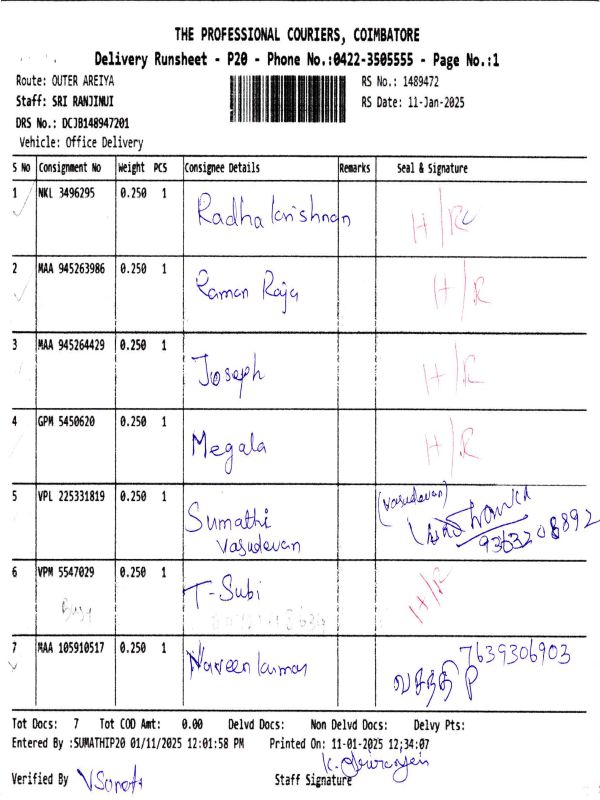 THE PROFESSIONAL COURIERS, COIMBATORE
Delivery Runsheet - P20 - Phone No.:0422-3505555 - Page No.:1
Route: OUTER AREIYA
RS No.: 1489472
Staff: SRI RANJINUI
RS Date: 11-Jan-2025
DRS No.: DCJB148947201
Vehicle: Office Delivery
S No Consignment No Weight PCS Consignee Details Remarks Seal & Signature
1 NKL 3496295 0.250 1 Radha krishnan H/R
2 MAA 945263986 0.250 1 Raman Raja H/R
3 MAA 945264429 0.250 1 Joseph H/R
4 GPM 5450620 0.250 1 Megala H/R
5 VPL 225331819 0.250 1 Sumathi (Vasudevan)
Vasudevan 9363208892
6 VPM 5547029 0.250 1 T-Subi H/R
Busy
7 MAA 105910517 0.250 1 Naveen kumar 7639306903
வசந்தி P
Tot Docs: 7 Tot COD Amt: 0.00 Delvd Docs: Non Delvd Docs: Delvy Pts:
Entered By :SUMATHIP20 01/11/2025 12:01:58 PM Printed On: 11-01-2025 12;34:07
Verified By Staff Signature